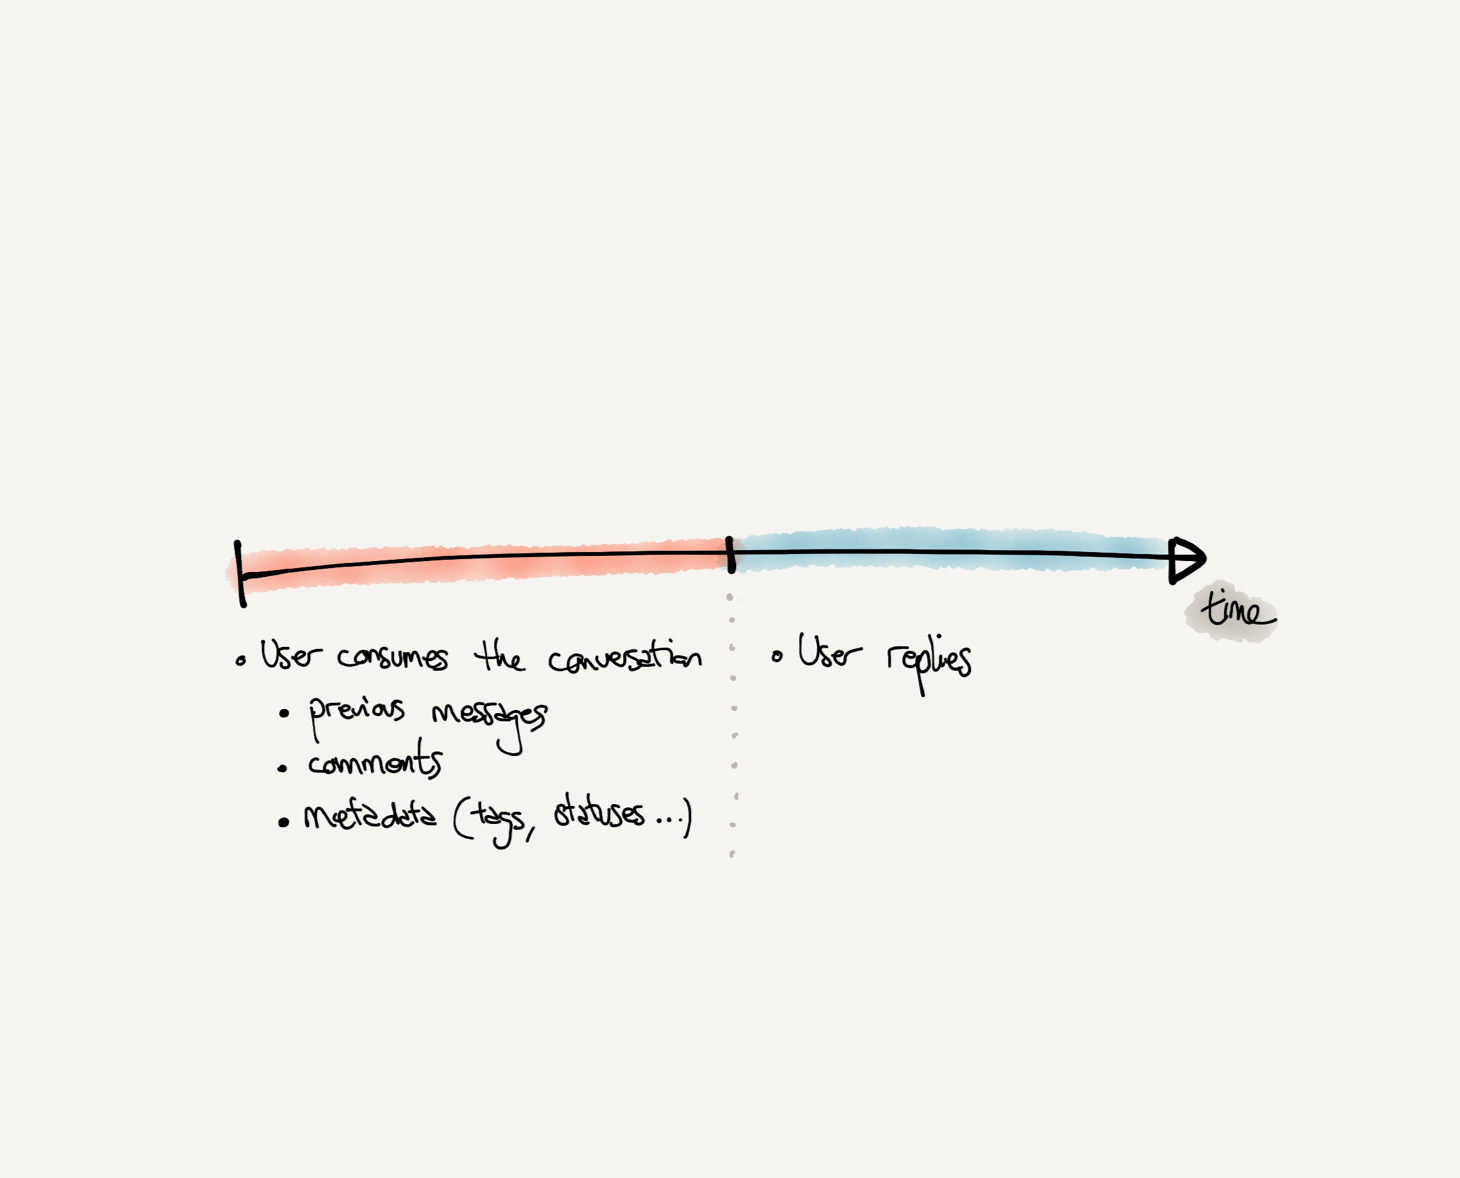 time
• User consumes the conversation
• previous messages
• comments
• metadata (tags, statuses...)
• User replies